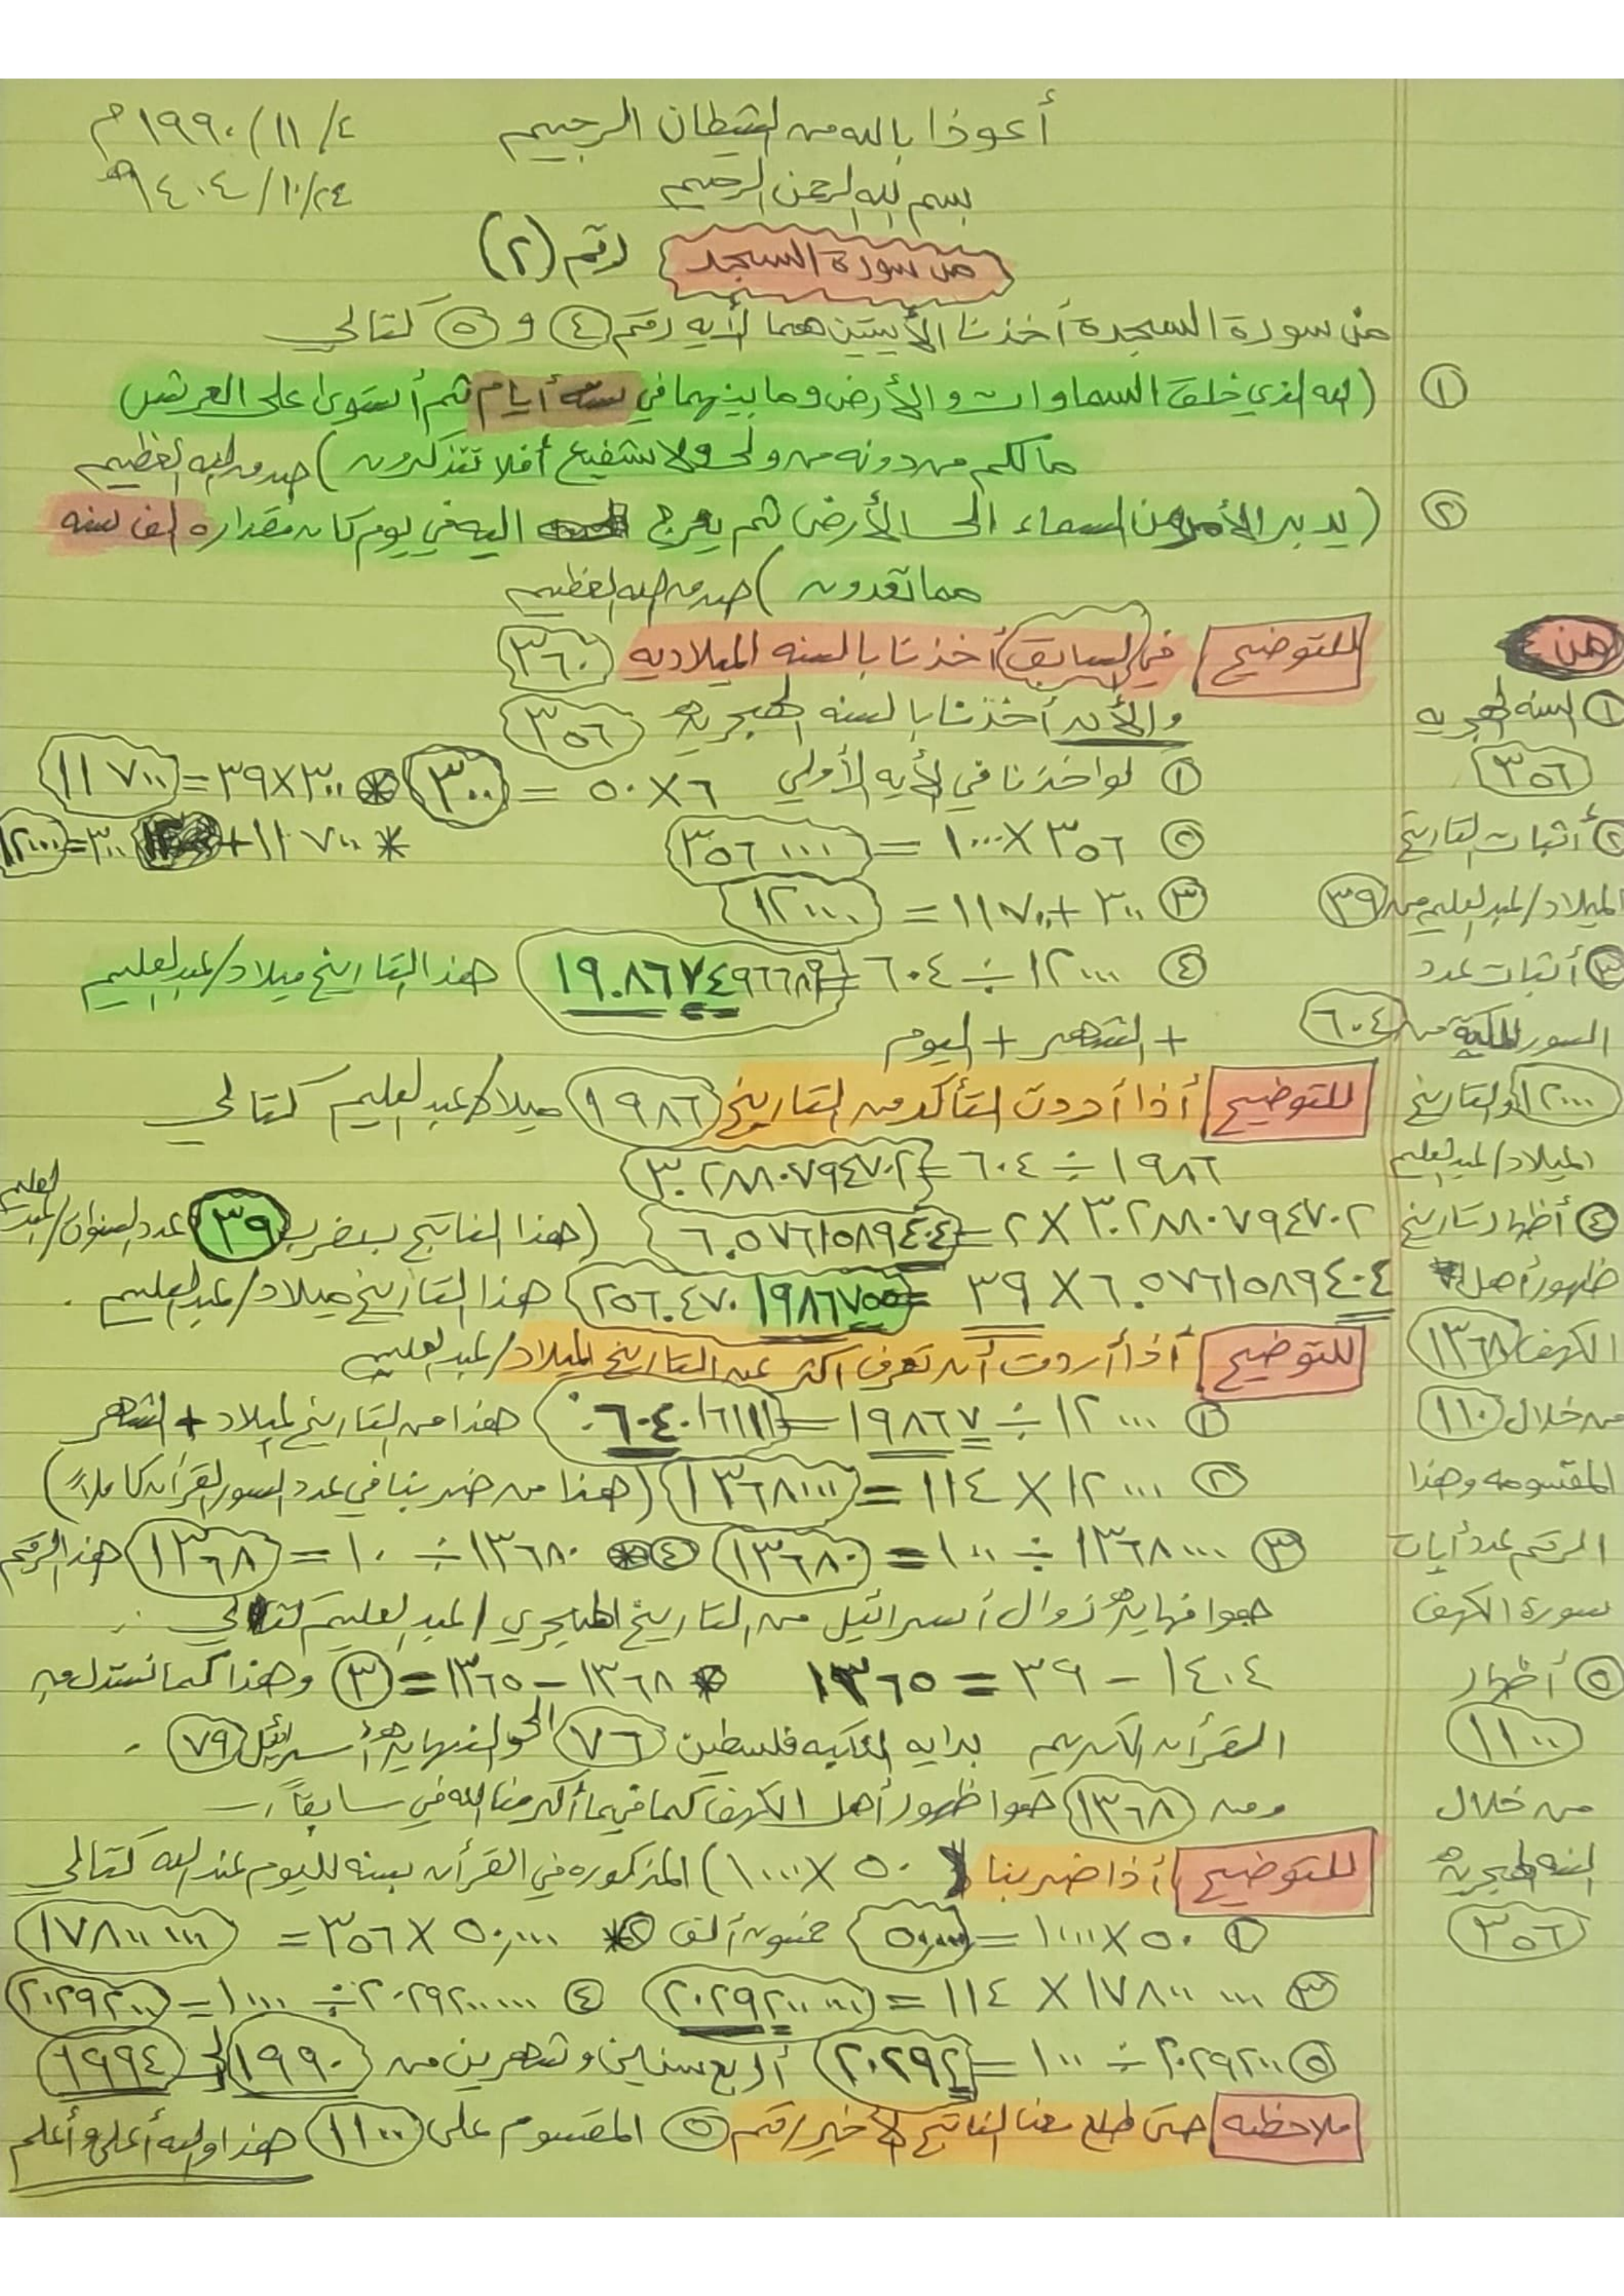 أعوذا بالله من الشيطان الرجيم
٤/ ١١/ ١٩٩٠م
بسم الله الرحمن الرحيم
٢٤/١٠/١٤٠٤هـ
من سورة السجد رقم (٢)
من سورة السجدة أخذنا الأيتين هما الأيه رقم ٤ و ٥ كتالي
١ (الله الذي خلق السماوات والأرض وما بينهما في سته أيام ثم أستوى على العرش
مالكم من دونه من ولي ولا شفيع أفلا تتذكرون) صدق الله العظيم
٢ (يدبر الأمر من السماء الى الأرض ثم يعرج اليه في يوم كان مقداره الف سنه
مما تعدون) صدق الله العظيم
للتوضيح في السابق أخذنا بالسنه الميلاديه ٣٦٠
والأن أخذنا بالسنه الهجريه ٣٥٦
١ لو اخذنا في الأيه الأولي ٦×٥٠ = ٣٠٠ * ٣٠٠×٣٩=١١٧٠٠
٢ ٣٥٦×١٠٠٠ = ٣٥٦٠٠٠ * ١١٧٠٠+ ٣٠٠=١٢٠٠٠
٣ ٣٠٠+١١٧٠٠ = ١٢٠٠٠
٤ ١٢٠٠٠ ÷ ٦٠٤ = ١٩.٨٦٧٤٩٦٦٨٩ هذا التاريخ ميلاد/عبدالعليم
+ الشهر + اليوم
للتوضيح أذا أردت التأكد من التاريخ ١٩٨٦ ميلاد/عبدالعليم كتالي
١٩٨٦ ÷ ٦٠٤ = ٣.٢٨٨٠٧٩٤٧٠٢
٣.٢٨٨٠٧٩٤٧٠٢ × ٢ = ٦.٥٧٦١٥٨٩٤٠٤ (هذا الناتج بيضرب ٣٩ عدد السنوات/لعبدالعليم
٦.٥٧٦١٥٨٩٤٠٤ × ٣٩ = ٢٥٦.٤٧٠١٩٨٦٧٥٥ هذا التاريخ ميلاد/عبدالعليم.
للتوضيح أذا أردت أن تعرف اكثر عن التاريخ الميلاد/لعبدالعليم
١ ١٢٠٠٠ ÷ ١٩٨٦٧ = ٠.٦٠٤٠١٦١١١ هذا من التاريخ الميلاد + الشهر
٢ ١٢٠٠٠ × ١١٤ = ١٣٦٨٠٠٠ (هذا من ضربنا في عدد السور القرأن كاملاً)
٣ ١٣٦٨٠٠٠ ÷ ١٠٠ = ١٣٦٨٠ * ٤ ١٣٦٨٠ ÷ ١٠ = ١٣٦٨ هذا الرقم
هوا نهايه زوال أسرائيل من التاريخ الهجري /لعبدالعليم كتالي :
١٤٠٤ - ٣٩ = ١٣٦٥ * ١٣٦٨ - ١٣٦٥ = ٣ وهذا كما نستدل من
القرأن الكريم بدايه النكبه فلسطين ٧٦ الى النهايه أسرائيل ٧٩ .
ومن ١٣٦٨ هوا ظهور أهل الكهف كما فيما أكرمنا الله في سابقاً
للتوضيح أذا ضربنا ٥٠ × ١٠٠٠) المذكوره في القرأن بسنه لليوم عند الله كتالي
١ ٥٠×١٠٠٠ = ٥٠.٠٠٠ خمسون ألف * ٢ ٥٠.٠٠٠ × ٣٥٦ = ١٧٨٠٠ ٠٠٠
٣ ١٧٨٠٠ ٠٠٠ × ١١٤ = ٢٠٢٩٢٠٠ ٠٠٠ ٤ ٢٠٢٩٢٠٠٠٠٠ ÷ ١٠٠٠ = ٢٠٢٩٢٠٠
٥ ٢٠٢٩٢٠٠ ÷ ١٠٠ = ٢٠٢٩٢ أربع سنين وشهرين من ١٩٩٠ الى ١٩٩٤
ملاحظه حتى طلع معنا الناتج الأخير رقم ٥ المقسوم على ١١٠٠ هذا والله أعلى وأعلم
من
١ السنه الهجريه
٣٥٦
٢ أثبات التاريخ
الميلاد/لعبدالعليم من ٣٩
٣ أثبات عدد
السور المكية من ٦٠٤
١٢٠٠٠ أو التاريخ
الميلاد/لعبدالعليم
٤ أظهار تاريخ
ظهور أهل
الكهف ١٣٦٨
من خلال ١١٠
المقسومه وهذا
الرقم عدد أيات
سورة الكهف
٥ أظهار
١١٠٠
من خلال
السنه الهجريه
٣٥٦